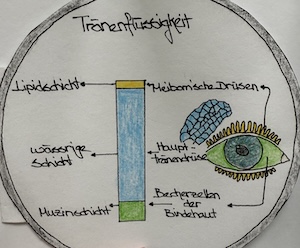 Tränenflüssigkeit
Lipidschicht
Meibomsche Drüsen
wässrige
Schicht
Haupt-
tränendrüse
Muzinschicht
Becherzellen
der
Bindehaut